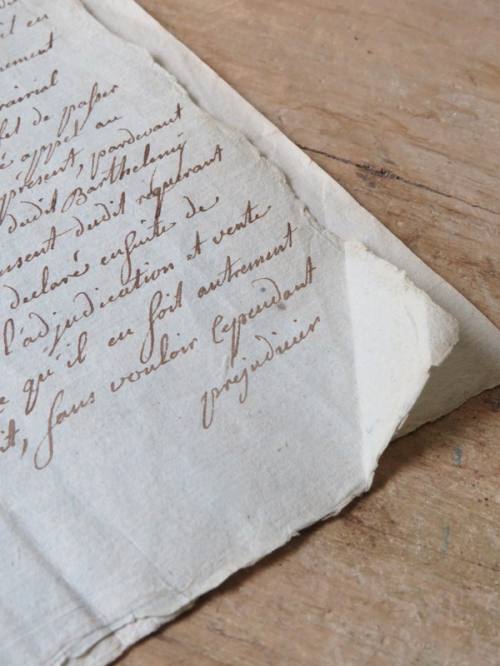 il en
nement
rairial
fet de passer
é appel au
présent, pardevant
dudit Barthelemy
nsent dudit requerant
declaré ensuite de
l'adjudication et vente
e qu'il en soit autrement
it, sans vouloir Cependant
préjudicier